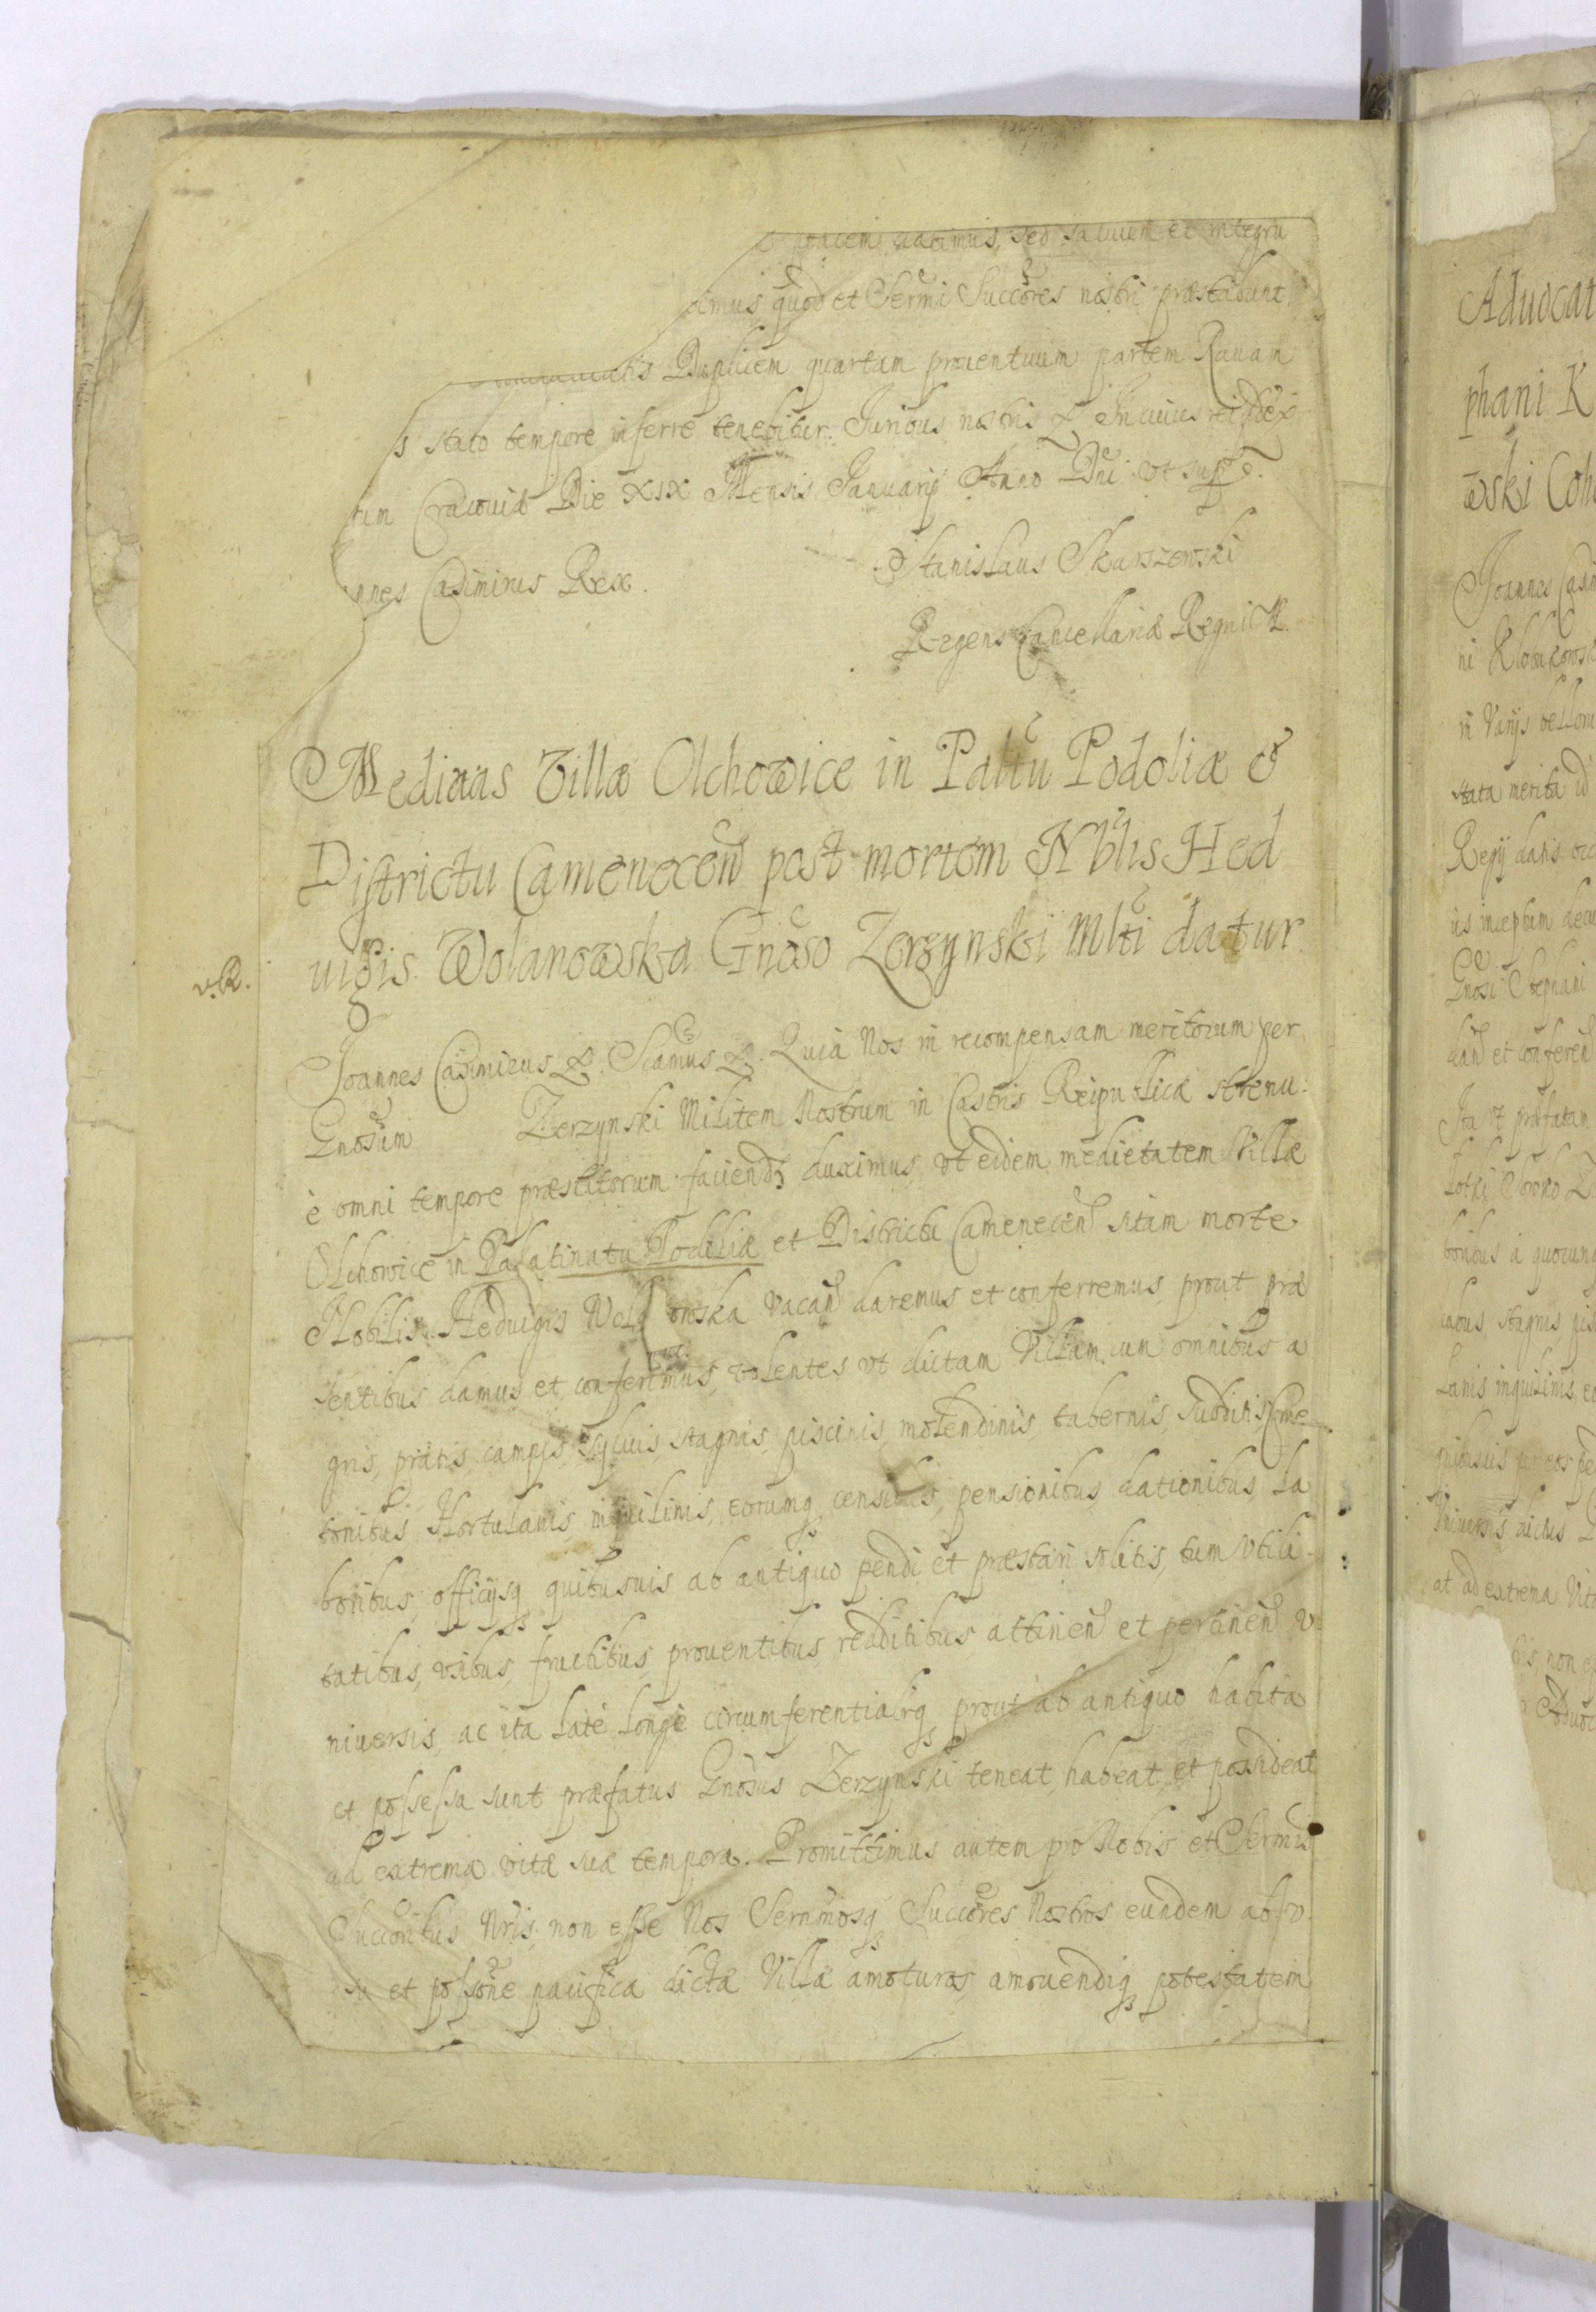 potestatem datimus, sed saluum et integrũ
imus quod et Sermi Succores nostri præstabunt,
Duplicem quartam prouentuum partem Rauam
s stato tempore inferre tenebitur. Juribus nostris &. In cuius rei
tum Cracoviæ Die XIX Mensis Januarij Anno Dni vt supra.
nnes Casimirus Rex.
Stanislaus Skarszewski
Regens Cancellariæ Regni
Medietas Villæ Olchowice in Paltu Podoliæ &
Districtu Camenecen post mortem Nblis Hed
uigis Wolanowska Gnoso Zerzynski Mlti datur
v.R.
Joannes Casimirus &. Scamus &. Quia Nos in recompensam meritorum per
Gnosum Zerzynski Militem Nostrum in Castris Reipublicæ strenu:
è omni tempore præstitorum faciend duximus, vt eidem medietatem Villæ
Olchowice in Palatinatu Podoliæ et Districtu Camenecen sitam morte
Nobilis Heduigis Wola owska vacan daremus et conferremus, prout præ
sentibus damus et conferimus, volentes vt dictam Villam cum omnibus a
gris, pratis, campis, syluis, stagnis, piscinis, molendinis, tabernis, Subditis, Cme
tonibus, Hortulanis, inquilinis, eorumq censibus, pensionibus dationibus, la
boribus, officijsq quibusuis ab antiquo pendi et præstari solitis, tum vtili
tatibus, vsibus, fructibus, prouentibus redditibus attinen et pertinen v
niuersis, ac ita late longe circumferentialirq prout ab antiquo habita
et possessa sunt præfatus Gnosus Zerzynski teneat, habeat, et possideat
ad extrema vitæ suæ tempora. Promittimus autem pro Nobis et Sermis
Succoribus Nris, non esse Nos Sermosq Succores Nostros eundem ab v
su et possone pacifica dictæ Villæ amoturos, amouendiq potestatem
Aduocat
phani K
wski Coh
Joannes Casim
ni Klobukowsk
in varijs bellor
stata merita id
Regij
us inceptum
Gnosi Stephani
dan et conferen
Ita vt præfatam
boribus a quocunq
cubus stagnis pis
lanis inquilinis, eo
quibusuis per eos pe
Vniuersis
at ad extrema Vit
bis, non e
Aduoc